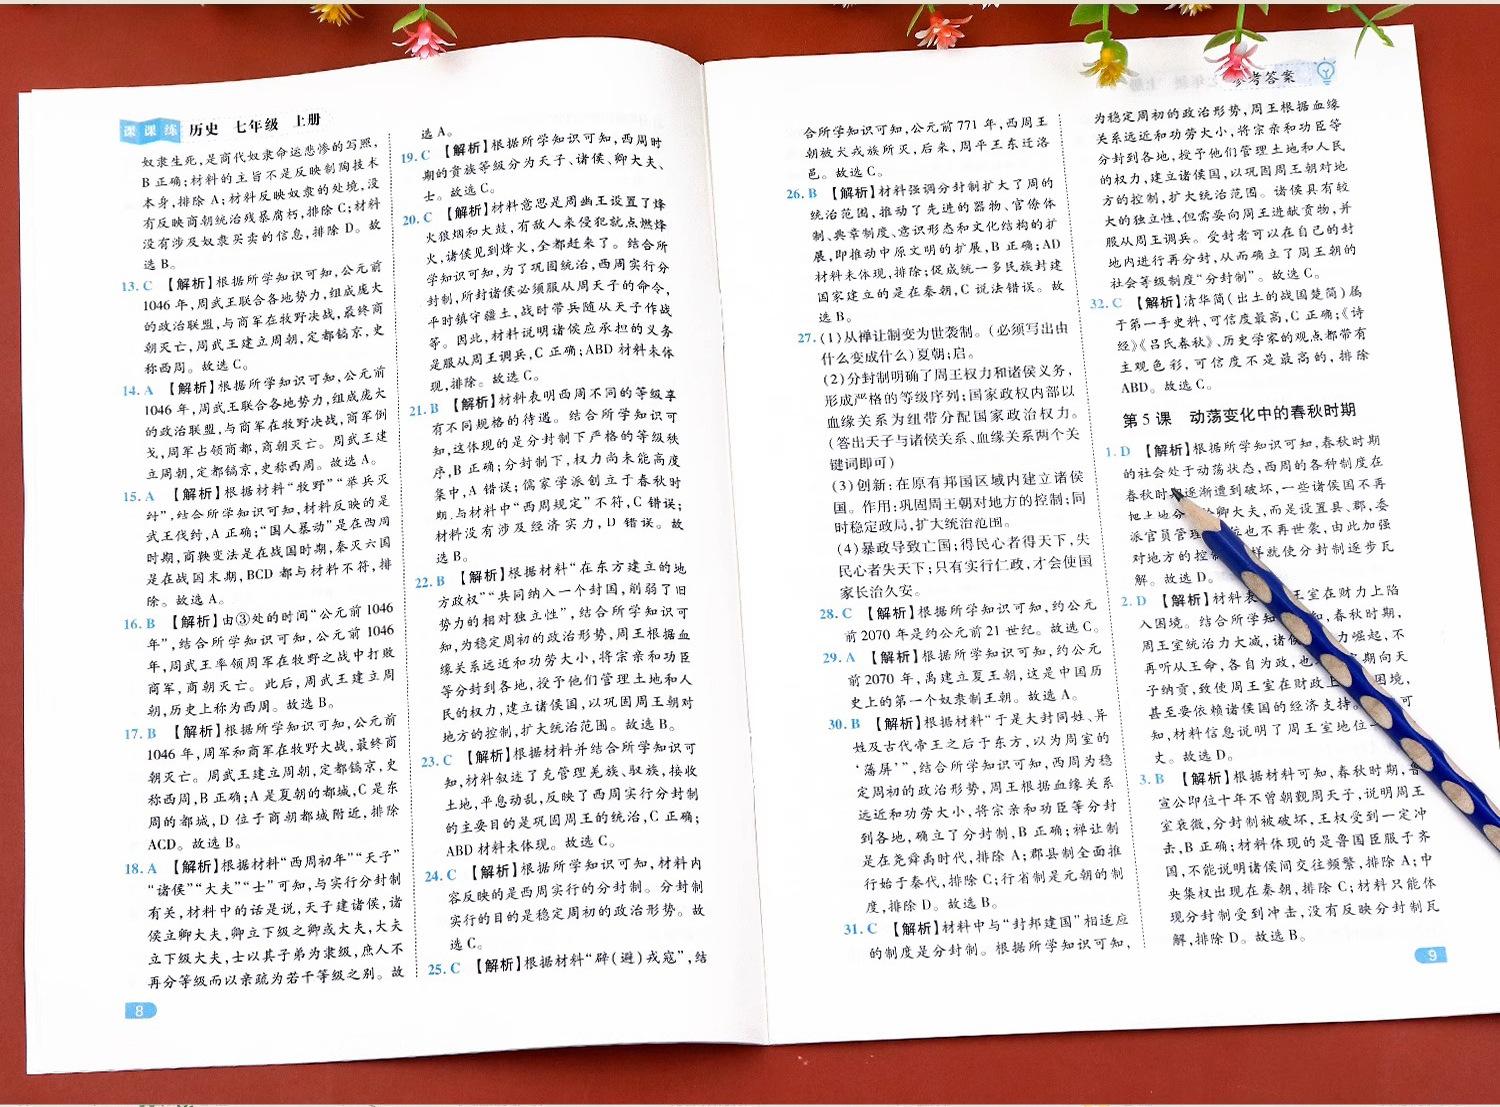 课课练 历史 七年级 上册
奴隶生死,是商代奴隶命运悲惨的写照,
B 正确;材料的主旨不是反映制陶技术
本身,排除 A;材料反映奴隶的处境,没
有反映商朝统治残暴腐朽,排除 C;材料
没有涉及奴隶买卖的信息,排除 D。故
选 B。
13. C 【解析】根据所学知识可知,公元前
1046 年,周武王联合各地势力,组成庞大
的政治联盟,与商军在牧野决战,最终商
朝灭亡,周武王建立周朝,定都镐京,史
称西周。故选 C。
14. A 【解析】根据所学知识可知,公元前
1046 年,周武王联合各地势力,组成庞大
的政治联盟,与商军在牧野决战,商军倒
戈,周军占领商都,商朝灭亡。周武王建
立周朝,定都镐京,史称西周。故选 A。
15. A 【解析】根据材料“牧野”“举兵灭
纣”,结合所学知识可知,材料反映的是
武王伐纣,A 正确;“国人暴动”是在西周
时期,商鞅变法是在战国时期,秦灭六国
是在战国末期,BCD 都与材料不符,排
除。故选 A。
16. B 【解析】由③处的时间“公元前 1046
年”,结合所学知识可知,公元前 1046
年,周武王率领周军在牧野之战中打败
商军,商朝灭亡。此后,周武王建立周
朝,历史上称为西周。故选 B。
17. B 【解析】根据所学知识可知,公元前
1046 年,周军和商军在牧野大战,最终商
朝灭亡。周武王建立周朝,定都镐京,史
称西周,B 正确;A 是夏朝的都城,C 是东
周的都城,D 位于商朝都城附近,排除
ACD。故选 B。
18. A 【解析】根据材料“西周初年”“天子”
“诸侯”“大夫”“士”可知,与实行分封制
有关,材料中的话是说,天子建诸侯,诸
侯立卿大夫,卿立下级之卿或大夫,大夫
立下级大夫,士以其子弟为隶级,庶人不
再分等级而以亲疏为若干等级之别。故
8
选 A。
19. C 【解析】根据所学知识可知,西周时
期的贵族等级分为天子、诸侯、卿大夫、
士。故选 C。
20. C 【解析】材料意思是周幽王设置了烽
火狼烟和大鼓,有敌人来侵犯就点燃烽
火,诸侯见到烽火,全都赶来了。结合所
学知识可知,为了巩固统治,西周实行分
封制,所封诸侯必须服从周天子的命令,
平时镇守疆土,战时带兵随从天子作战
等。因此,材料说明诸侯应承担的义务
是服从周王调兵,C 正确;ABD 材料未体
现,排除。故选 C。
21. B 【解析】材料表明西周不同的等级享
有不同规格的待遇。结合所学知识可
知,这体现的是分封制下严格的等级秩
序,B 正确;分封制下,权力尚未能高度
集中,A 错误;儒家学派创立于春秋时
期,与材料中“西周规定”不符,C 错误;
材料没有涉及经济实力,D 错误。故
选 B。
22. B 【解析】根据材料“在东方建立的地
方政权”“共同纳入一个封国,削弱了旧
势力的相对独立性”,结合所学知识可
知,为稳定周初的政治形势,周王根据血
缘关系远近和功劳大小,将宗亲和功臣
等分封到各地,授予他们管理土地和人
民的权力,建立诸侯国,以巩固周王朝对
地方的控制,扩大统治范围。故选 B。
23. C 【解析】根据材料并结合所学知识可
知,材料叙述了克管理羌族、驭族,接收
土地,平息动乱,反映了西周实行分封制
的主要目的是巩固周王的统治,C 正确;
ABD 材料未体现。故选 C。
24. C 【解析】根据所学知识可知,材料内
容反映的是西周实行的分封制。分封制
实行的目的是稳定周初的政治形势。故
选 C。
25. C 【解析】根据材料“辟(避)戎寇”,结
参考答案
合所学知识可知,公元前 771 年,西周王
朝被犬戎族所灭,后来,周平王东迁洛
邑。故选 C。
26. B 【解析】材料强调分封制扩大了周的
统治范围,推动了先进的器物、官僚体
制、典章制度、意识形态和文化结构的扩
展,即推动中原文明的扩展,B 正确;AD
材料未体现,排除;促成统一多民族封建
国家建立的是在秦朝,C 说法错误。故
选 B。
27. (1)从禅让制变为世袭制。(必须写出由
什么变成什么)夏朝;启。
(2)分封制明确了周王权力和诸侯义务,
形成严格的等级序列;国家政权内部以
血缘关系为纽带分配国家政治权力。
(答出天子与诸侯关系、血缘关系两个关
键词即可)
(3)创新:在原有邦国区域内建立诸侯
国。作用:巩固周王朝对地方的控制;同
时稳定政局,扩大统治范围。
(4)暴政导致亡国;得民心者得天下,失
民心者失天下;只有实行仁政,才会使国
家长治久安。
28. C 【解析】根据所学知识可知,约公元
前 2070 年是约公元前 21 世纪。故选 C。
29. A 【解析】根据所学知识可知,约公元
前 2070 年,禹建立夏王朝,这是中国历
史上的第一个奴隶制王朝。故选 A。
30. B 【解析】根据材料“于是大封同姓、异
姓及古代帝王之后于东方,以为周室的
‘藩屏’”,结合所学知识可知,西周为稳
定周初的政治形势,周王根据血缘关系
远近和功劳大小,将宗亲和功臣等分封
到各地,确立了分封制,B 正确;禅让制
是在尧舜禹时代,排除 A;郡县制全面推
行始于秦代,排除 C;行省制是元朝的制
度,排除 D。故选 B。
31. C 【解析】材料中与“封邦建国”相适应
的制度是分封制。根据所学知识可知,
为稳定周初的政治形势,周王根据血缘
关系远近和功劳大小,将宗亲和功臣等
分封到各地,授予他们管理土地和人民
的权力,建立诸侯国,以巩固周王朝对地
方的控制,扩大统治范围。诸侯具有较
大的独立性,但需要向周王进献贡物,并
服从周王调兵。受封者可以在自己的封
地内进行再分封,从而确立了周王朝的
社会等级制度“分封制”。故选 C。
32. C 【解析】清华简(出土的战国楚简)属
于第一手史料,可信度最高,C 正确;《诗
经》《吕氏春秋》、历史学家的观点都带有
主观色彩,可信度不是最高的,排除
ABD。故选 C。
第 5 课 动荡变化中的春秋时期
1. D 【解析】根据所学知识可知,春秋时期
的社会处于动荡状态,西周的各种制度在
春秋时 逐渐遭到破坏,一些诸侯国不再
把土地分 卿大夫,而是设置县、郡,委
派官员管理 位也不再世袭,由此加强
对地方的控 样就使分封制逐步瓦
解。故选 D。
2. D 【解析】材料表 王室在财力上陷
入困境。结合所学知 知,春秋时期,
周王室统治力大减,诸侯 力崛起,不
再听从王命,各自为政,也 期向天
子纳贡,致使周王室在财政上 困境,
甚至要依赖诸侯国的经济支持。 可
知,材料信息说明了周王室地位一
丈。故选 D。
3. B 【解析】根据材料可知,春秋时期,鲁
宣公即位十年不曾朝觐周天子,说明周王
室衰微,分封制被破坏,王权受到一定冲
击,B 正确;材料体现的是鲁国臣服于齐
国,不能说明诸侯间交往频繁,排除 A;中
央集权出现在秦朝,排除 C;材料只能体
现分封制受到冲击,没有反映分封制瓦
解,排除 D。故选 B。
9